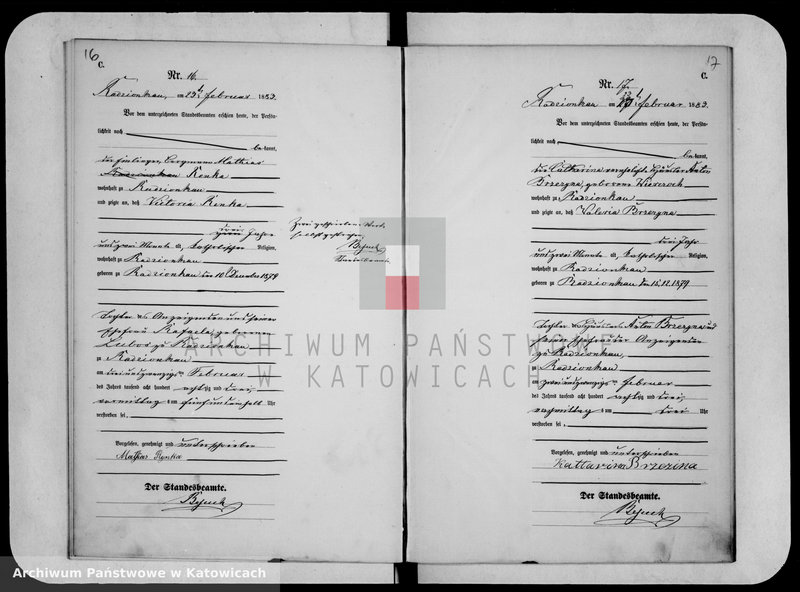 16
C.
Nr. 16.
Radzionkau, am 23t Februar 1883.
Vor dem unterzeichneten Standesbeamten erschien heute, der Persön-
lichkeit nach
be kannt,
der Einlieger, Bergmann Mathias
Renka
wohnhaft zu Radzionkau
und zeigte an, daß Victoria Renka
drei Jahre
und zwei Monate alt, katholischer Religion,
wohnhaft zu Radzionkau
geboren zu Radzionkau den 10 December 1879
Tochter des Anzeigenden und seiner
Ehefrau Rafaela, geborenen
Lubos zu Radzionkau
zu Radzionkau
am drei und zwanzigsten Februar
des Jahres tausend acht hundert achtzig und drei,
vormittag um fünf und einhalb Uhr
verstorben sei.
Vorgelesen, genehmigt und unterschrieben
Mathias Rynka
Der Standesbeamte.
Zwei geschriebene Worte
selbst gestrichen.
Standesbeamte
17
C.
Nr. 17.
Radzionkau am 23t Februar 1883.
Vor dem unterzeichneten Standesbeamten erschien heute, der Persön-
lichkeit nach
be kannt,
die Catharina verehelichte Häusler Anton
Brzezyna, geborene
wohnhaft zu Radzionkau
und zeigte an, daß Valeria Brzezyna
drei Jahr
und zwei Monate alt, katholischer Religion,
wohnhaft zu Radzionkau
geboren zu Radzionkau den 15.12.1879
Tochter des Häuslers Anton Brzezyna und
seiner Ehefrau der Anzeigenden
zu Radzionkau,
zu Radzionkau
am zwei und zwanzigsten Februar
des Jahres tausend acht hundert achtzig und drei,
nachmittag um drei Uhr
verstorben sei.
Vorgelesen, genehmigt und unterschrieben
Kattarina Brzezina
Der Standesbeamte.
ARCHIWUM PAŃSTWOWE
W KATOWICACH
Archiwum Państwowe w Katowicach
Archiwum Państwowe w Katowicach